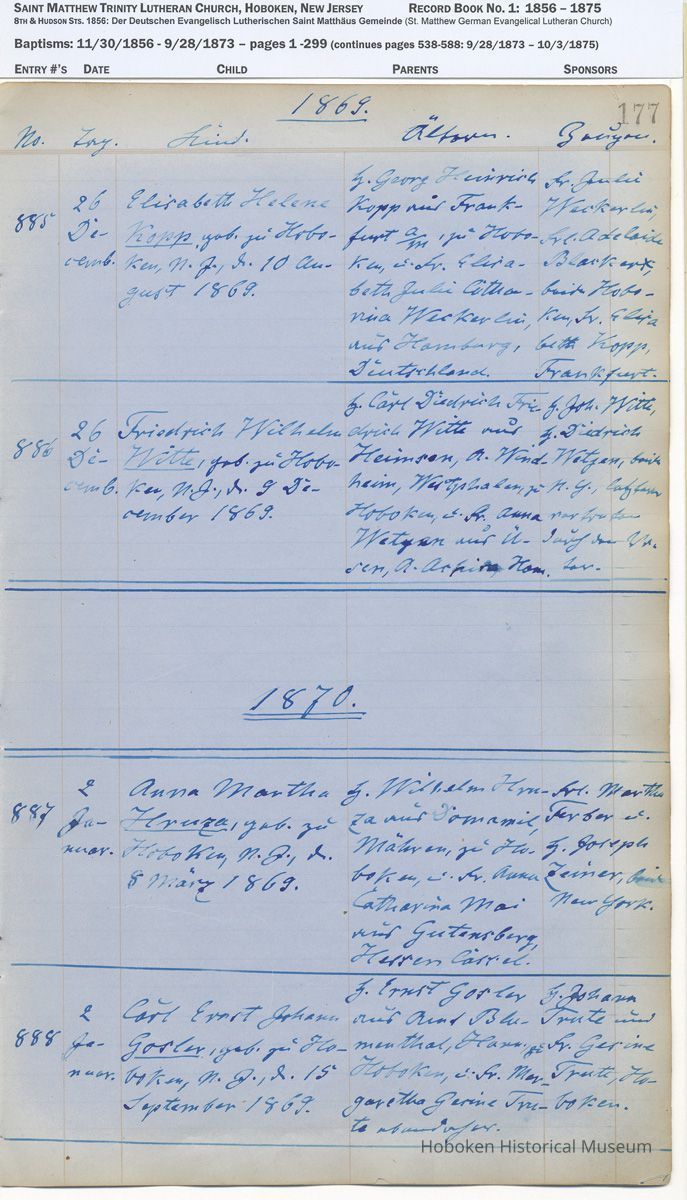 SAINT MATTHEW TRINITY LUTHERAN CHURCH, HOBOKEN, NEW JERSEY RECORD BOOK NO. 1: 1856 – 1875
8TH & HUDSON STS. 1856: Der Deutschen Evangelisch Lutherischen Saint Matthäus Gemeinde (St. Matthew German Evangelical Lutheran Church)
Baptisms: 11/30/1856 - 9/28/1873 – pages 1 -299 (continues pages 538-588: 9/28/1873 – 10/3/1875)
ENTRY #'S DATE CHILD PARENTS SPONSORS
1869. 177
No. Tag. Kind. Ältern. Zeugen.
885
26
De-
cemb.
Elisabeth Helene
Kopp, geb. zu Hobo-
ken, N. J., d. 10 Au-
gust 1869.
H. Georg Heinrich
Kopp aus Frank-
furt a/m, zu Hobo-
ken, u. Fr. Elisa-
beth Julie Catha-
rina Weckerlin,
aus Hamburg,
Deutschland.
Fr. Julie
Weckerlin,
Frl. Adelaide
beide Hobo-
ken, Fr. Elisa
beth Kopp,
Frankfurt.
886
26
De-
cemb.
Friedrich Wilhelm
Witte, geb. zu Hobo-
ken, N. J., d. 9 De-
cember 1869.
H. Carl Diedrich Frie-
drich Witte aus
Heimsen, A. Wind-
heim, Westphalen, zu
Hoboken, u. Fr. Anna
aus U-
sen, A. Achim, Han.
H. Joh. Witte,
H. Diedrich
beide
N. Y., letzterer
vertreten
durch den Va-
ter.
1870.
887
2
Ja-
nuar.
Anna Martha
Hruza, geb. zu
Hoboken, N. J., d.
8 März 1869.
H. Wilhelm Hru-
za aus Domamil,
Mähren, zu Ho-
boken, u. Fr. Anna
Catharina Mai
aus Gutensberg,
Hessen Cassel.
Frl. Martha
Ferber u.
H. Joseph
Zeiner, beide
New York.
888
2
Ja-
nuar.
Carl Ernst Johann
Gosler, geb. zu Ho-
boken, N. J., d. 15
September 1869.
H. Ernst Gosler
aus Amt Blu-
menthal, Hann. zu
Hoboken, u. Fr. Mar-
garetha Gesine Tru-
te ebendaher.
H. Johann
Trute und
Fr. Gesine
Trute, Ho-
boken.
Hoboken Historical Museum